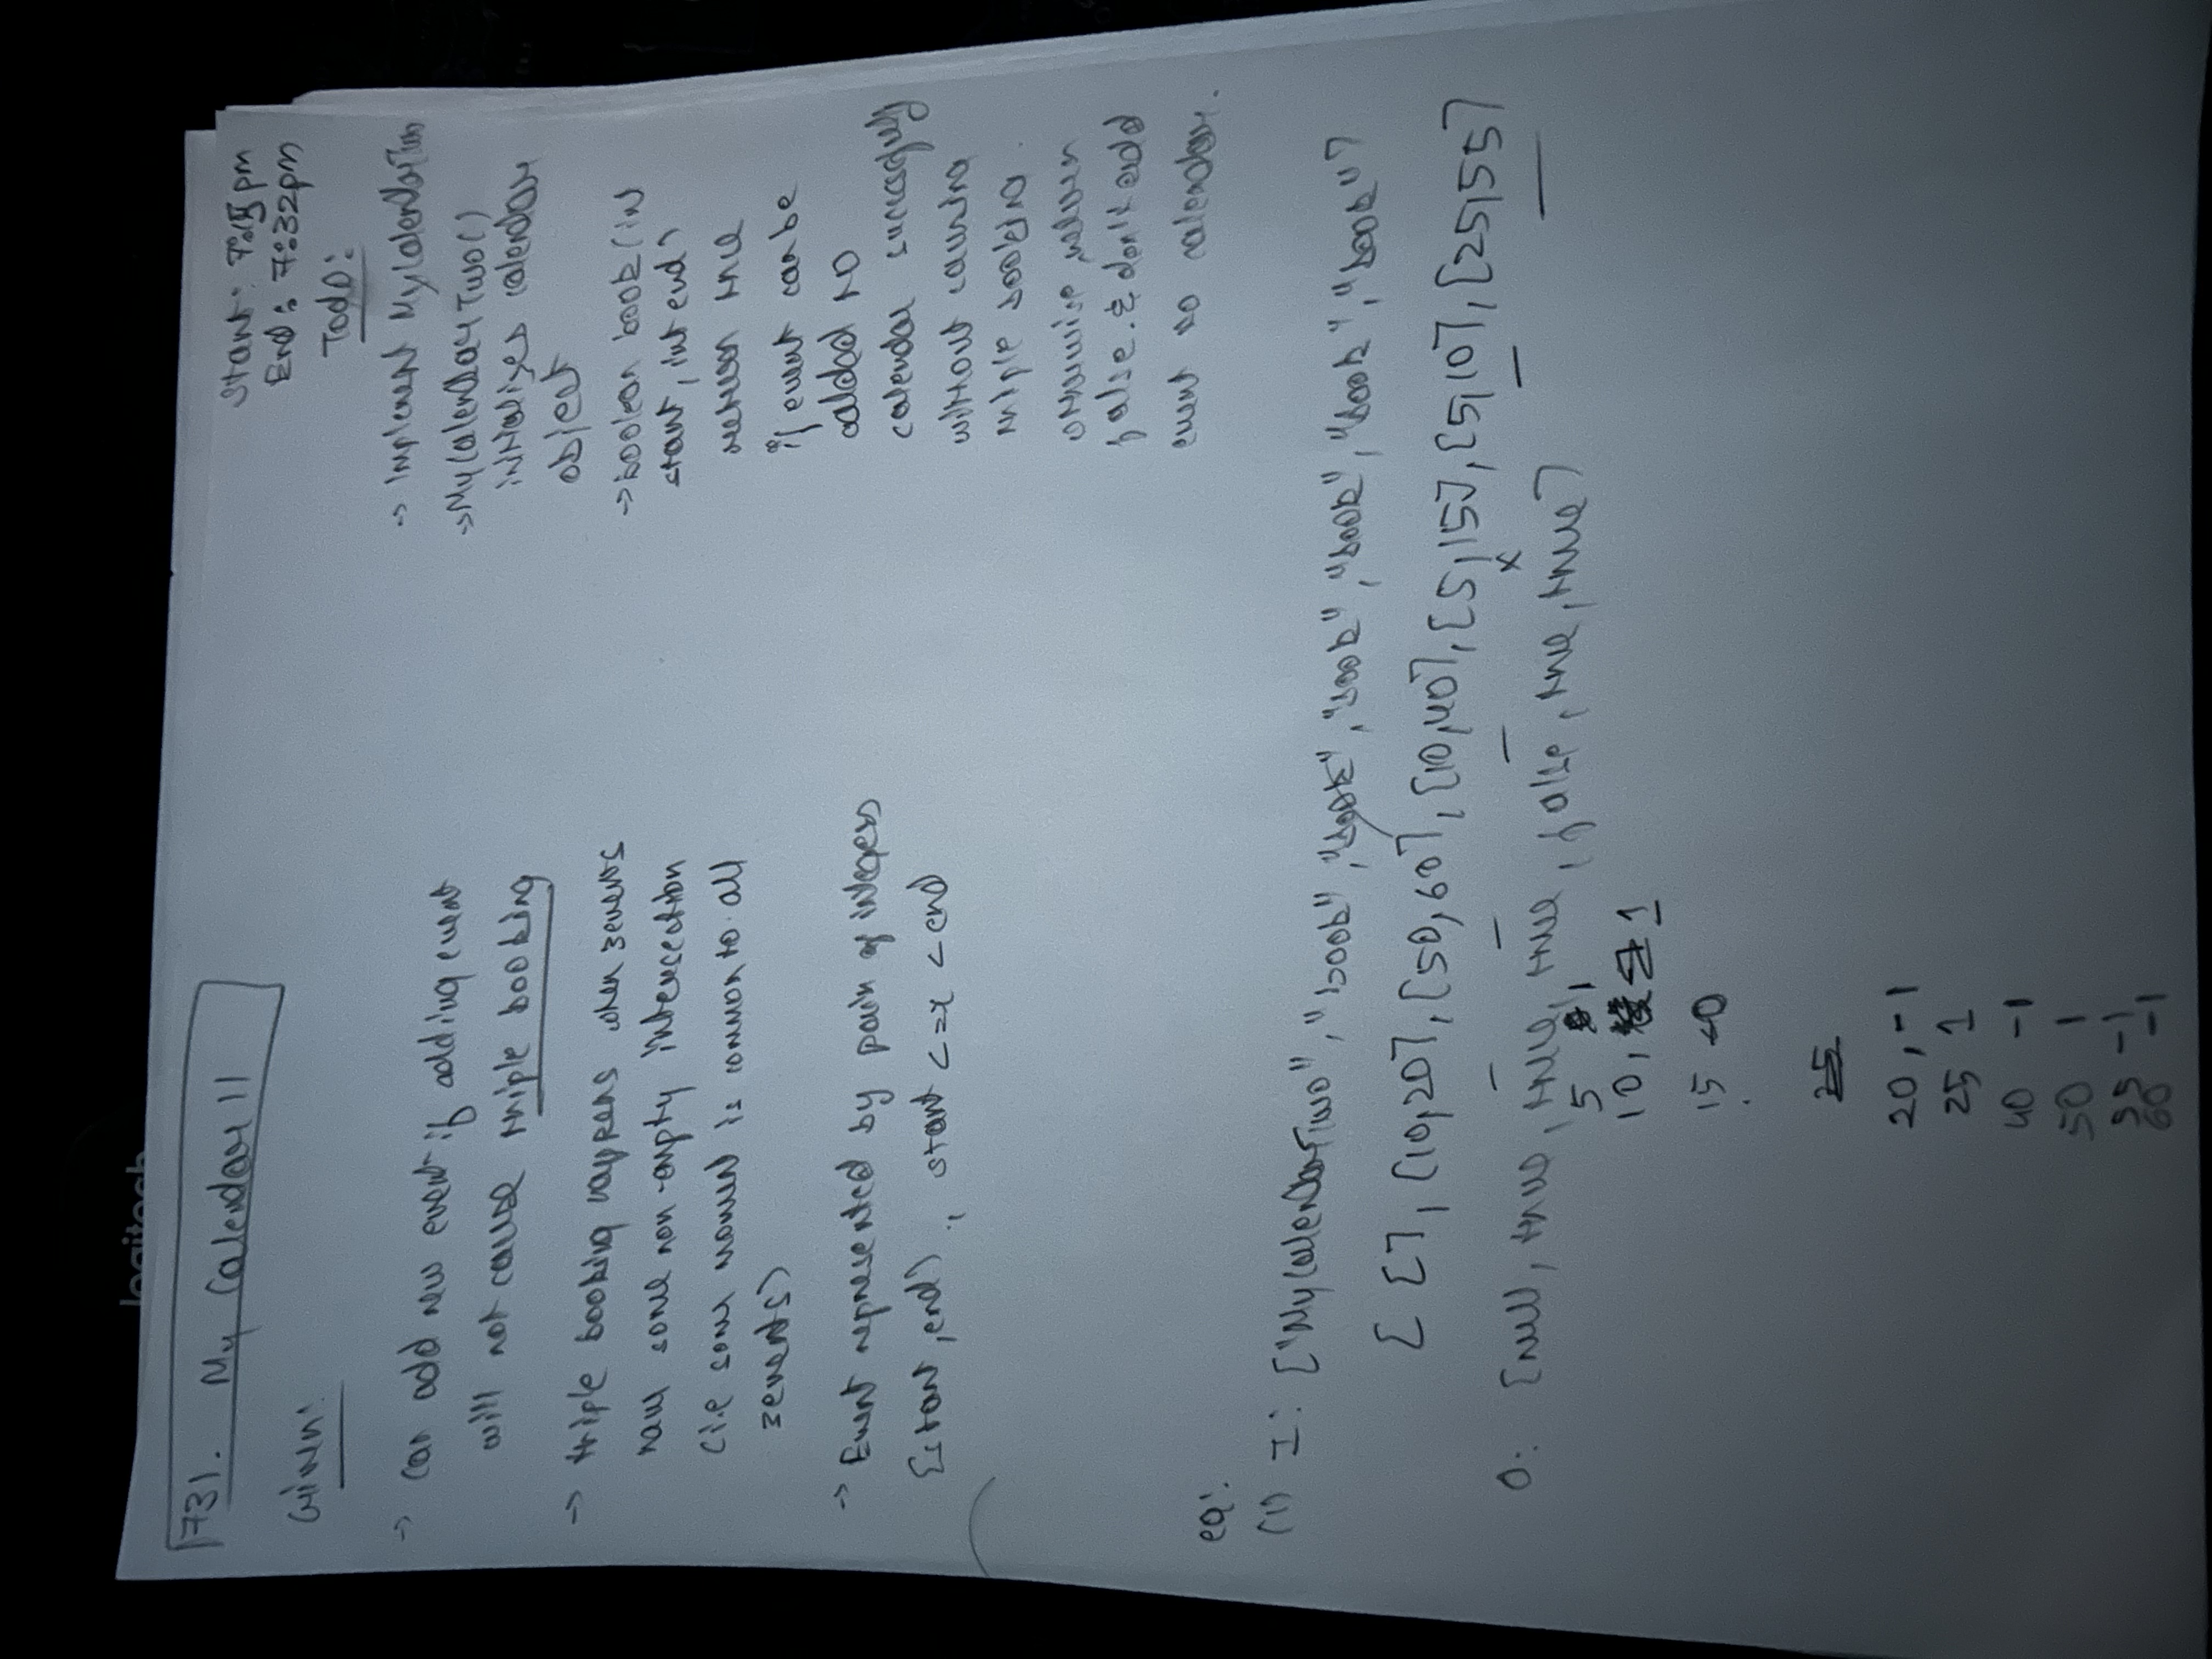 logitech
731. My Calendar II
Start: 7:15 pm
End: 7:32pm
Given:
TODO:
-> can add new event if adding event
will not cause triple booking
-> triple booking happens when 3events
have some non-empty intersection
(i.e some moment is common to all
3events)
-> Event represented by pair of integers
[start, end) , start <=x < end
-> Implement MyCalendarTwo
-> MyCalendarTwo()
initializes calendar
object
-> boolean book (int
start, int end)
return true
if event can be
added to
calendar successfully
without causing
triple booking.
otherwise, return
false. & don't add
event to calendar.
eg:
(1) I: ["MyCalendarTwo", "book", "book", "book", "book", "book", "book"]
[ [], [10,20], [50,60], [10,40], [5,15], [5,10], [25,55]
x
O: [null, true, true, true, false, true, true]
5 1
10, 1
15 0
25
20, -1
25 1
40 -1
50 1
55 -1
60 -1